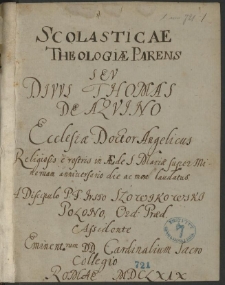 SCOLASTICAE
THEOLOGIÆ PARENS
SEV
DIVVS THOMAS
DE AQVINO
Ecclesiæ Doctor Angelicus
Religiosis è rostris in Æde S Mariæ super Mi
nervam anniversario die ac more laudatus
A Discipulo
POLONO, Ord Præd
Assidente
Eminent DD Cardinalium Sacro
Collegio
ROMAE
721